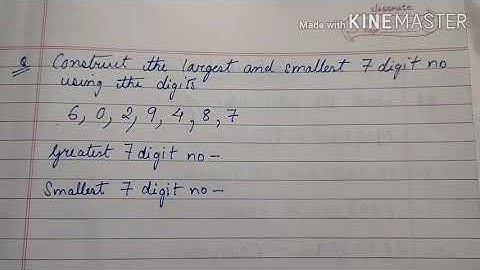 classmate
Made with KINEMASTER
Q Construct the largest and smallest 7 digit no
using the digits
6, 0, 2, 9, 4, 8, 7
Greatest 7 digit no –
Smallest 7 digit no –